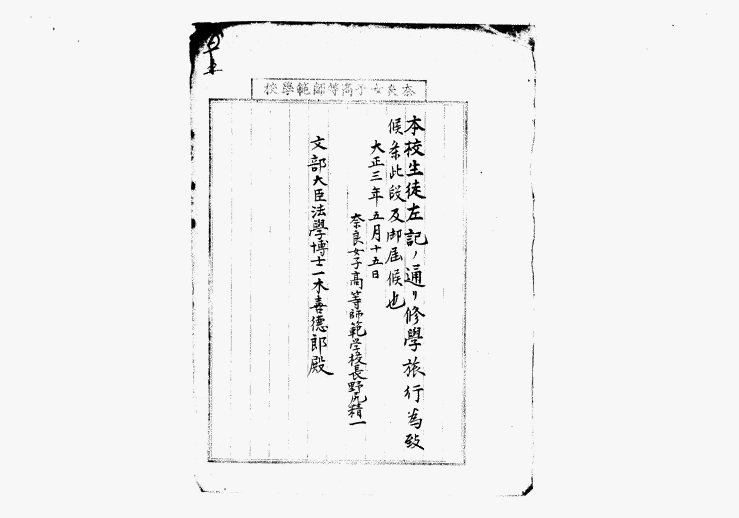 奈良女子高等師範學校
本校生徒左記ノ通リ修學旅行為致
候条此段及御届候也
大正三年五月十五日
奈良女子高等師範学校長野尻精一
文部大臣法學博士一木喜德郎殿